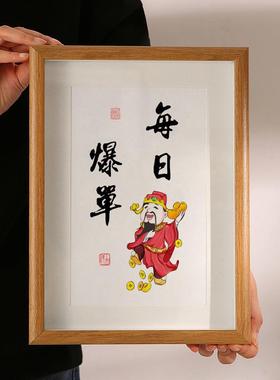 每日
爆單